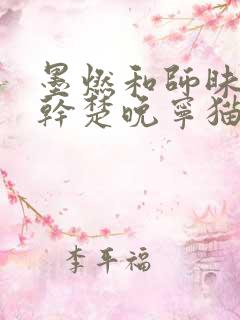 墨燃和師昧
幹楚晚寧猫
李平福